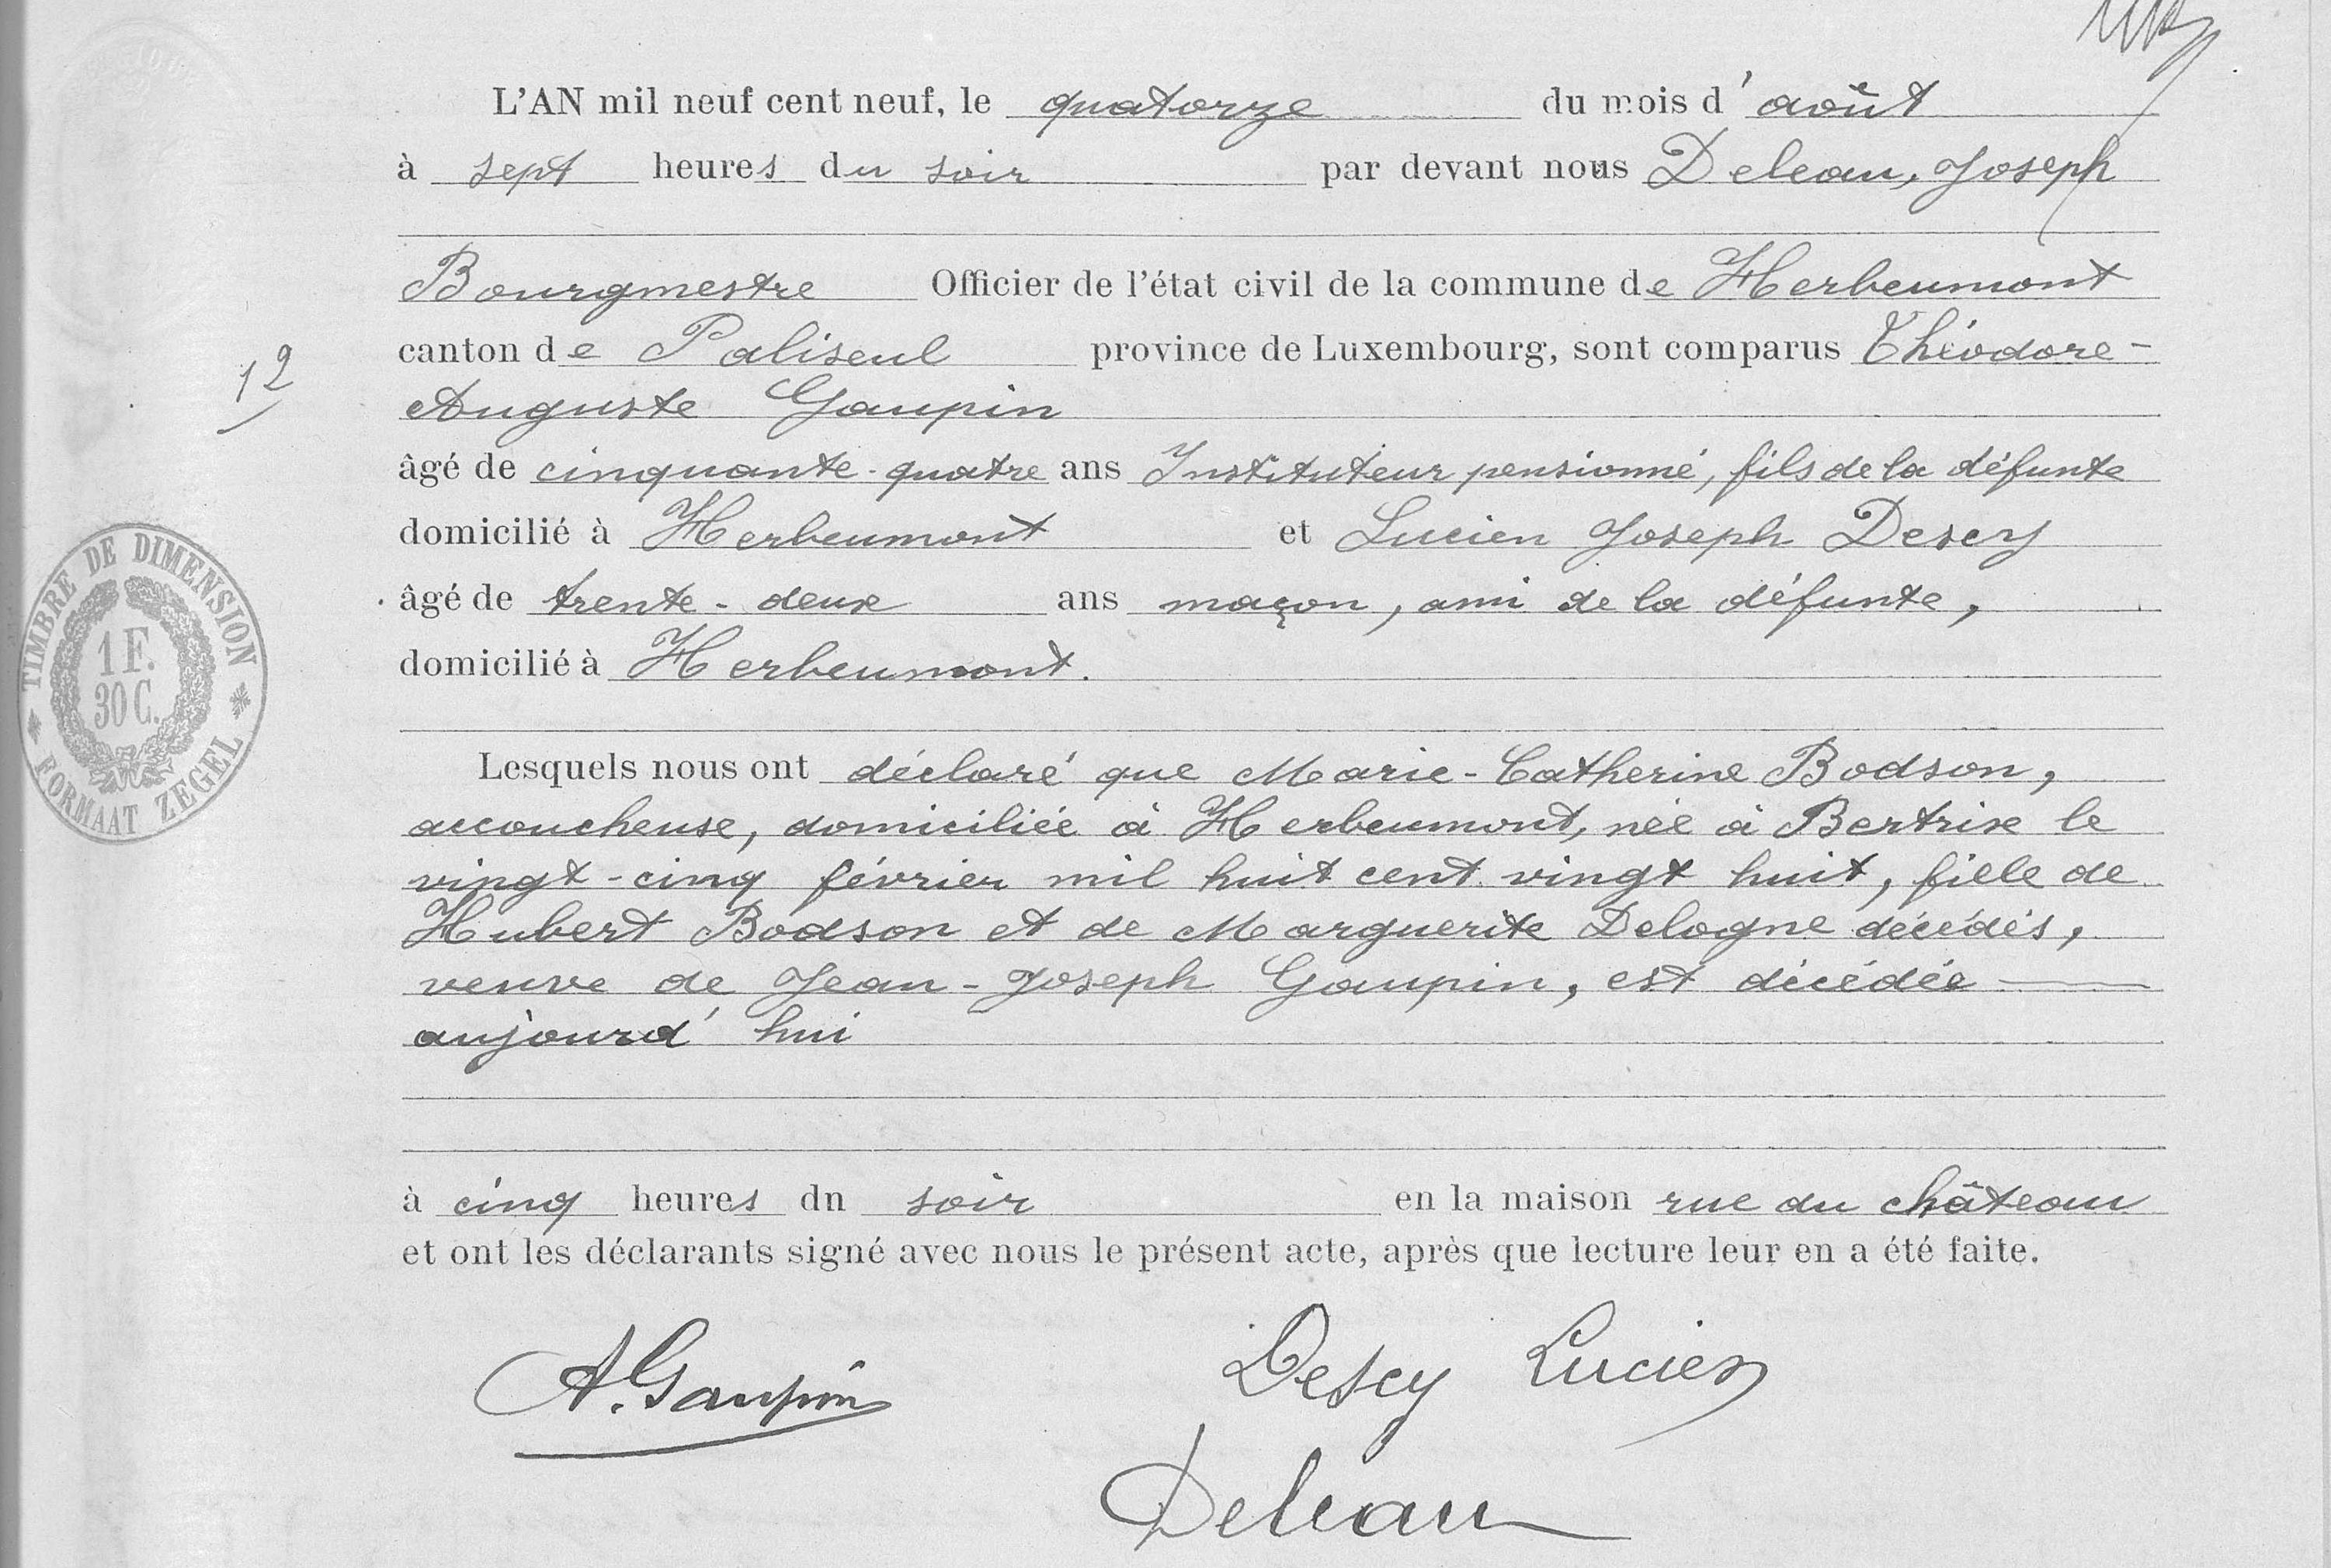 L'AN mil neuf cent neuf, le quatorze du mois d'août
à sept heures du soir par devant nous Deleau, Joseph
Bourgmestre Officier de l'état civil de la commune de Herbeumont
canton de Paliseul province de Luxembourg, sont comparus Théodore-
Auguste Gaupin
âgé de cinquante-quatre ans Instituteur pensionné, fils de la défunte
domicilié à Herbeumont et Lucien Joseph Descy
âgé de trente-deux ans maçon, ami de la défunte,
domicilié à Herbeumont.
12
TIMBRE DE DIMENSION
1 F.
30 C.
FORMAAT ZEGEL
Lesquels nous ont déclaré que Marie-Catherine Bodson,
accoucheuse, domiciliée à Herbeumont, née à Bertrix le
vingt-cinq février mil huit cent vingt huit, fille de
Hubert Bodson et de Marguerite Delogne décédés,
veuve de Jean-Joseph Gaupin, est décédée
aujourd'hui
à cinq heures du soir en la maison rue du château
et ont les déclarants signé avec nous le présent acte, après que lecture leur en a été faite.
A. Gaupin
Descy Lucien
Deleau